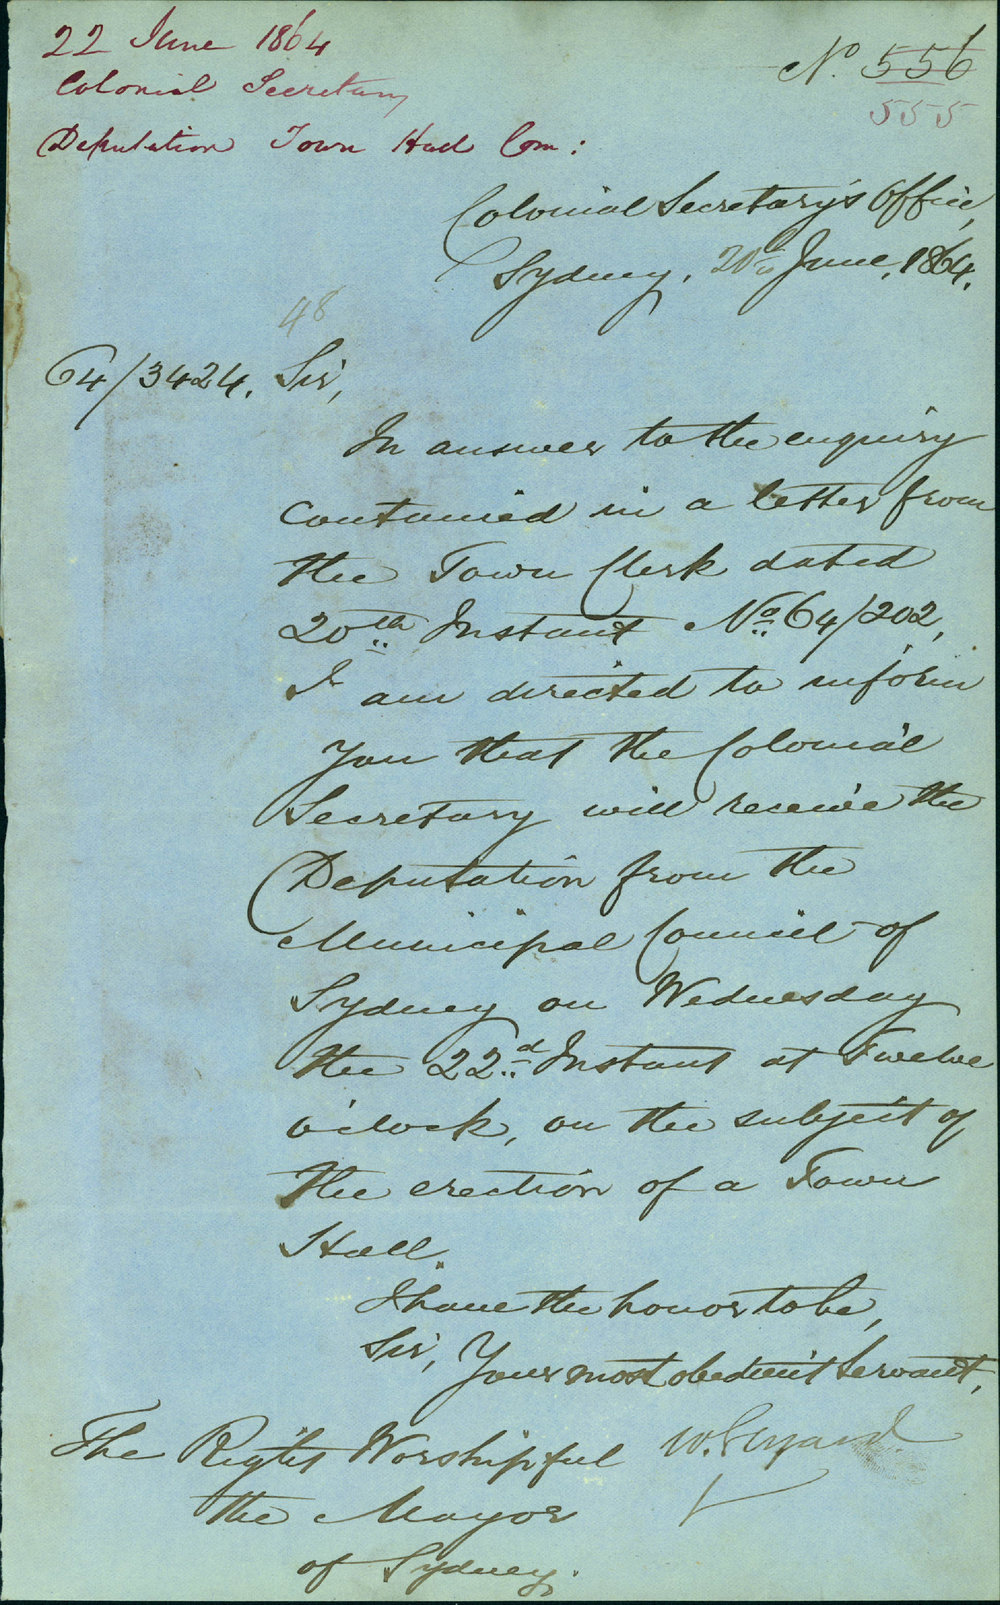 22 June 1864
Colonial Secretary
Deputation Town Hall Com:
No. 556
555
Colonial Secretary's Office,
Sydney, 20th June, 1864.
48
64/3424. Sir,
In answer to the enquiry
contained in a letter from
the Town Clerk dated
20th Instant No 64/202,
I am directed to inform
you that the Colonial
Secretary will receive the
Deputation from the
Municipal Council of
Sydney on Wednesday
the 22d Instant at Twelve
o'clock, on the subject of
the erection of a Town
Hall.
I have the honor to be,
Sir, Your most obedient Servant,
The Right Worshipful
the Mayor
of Sydney.